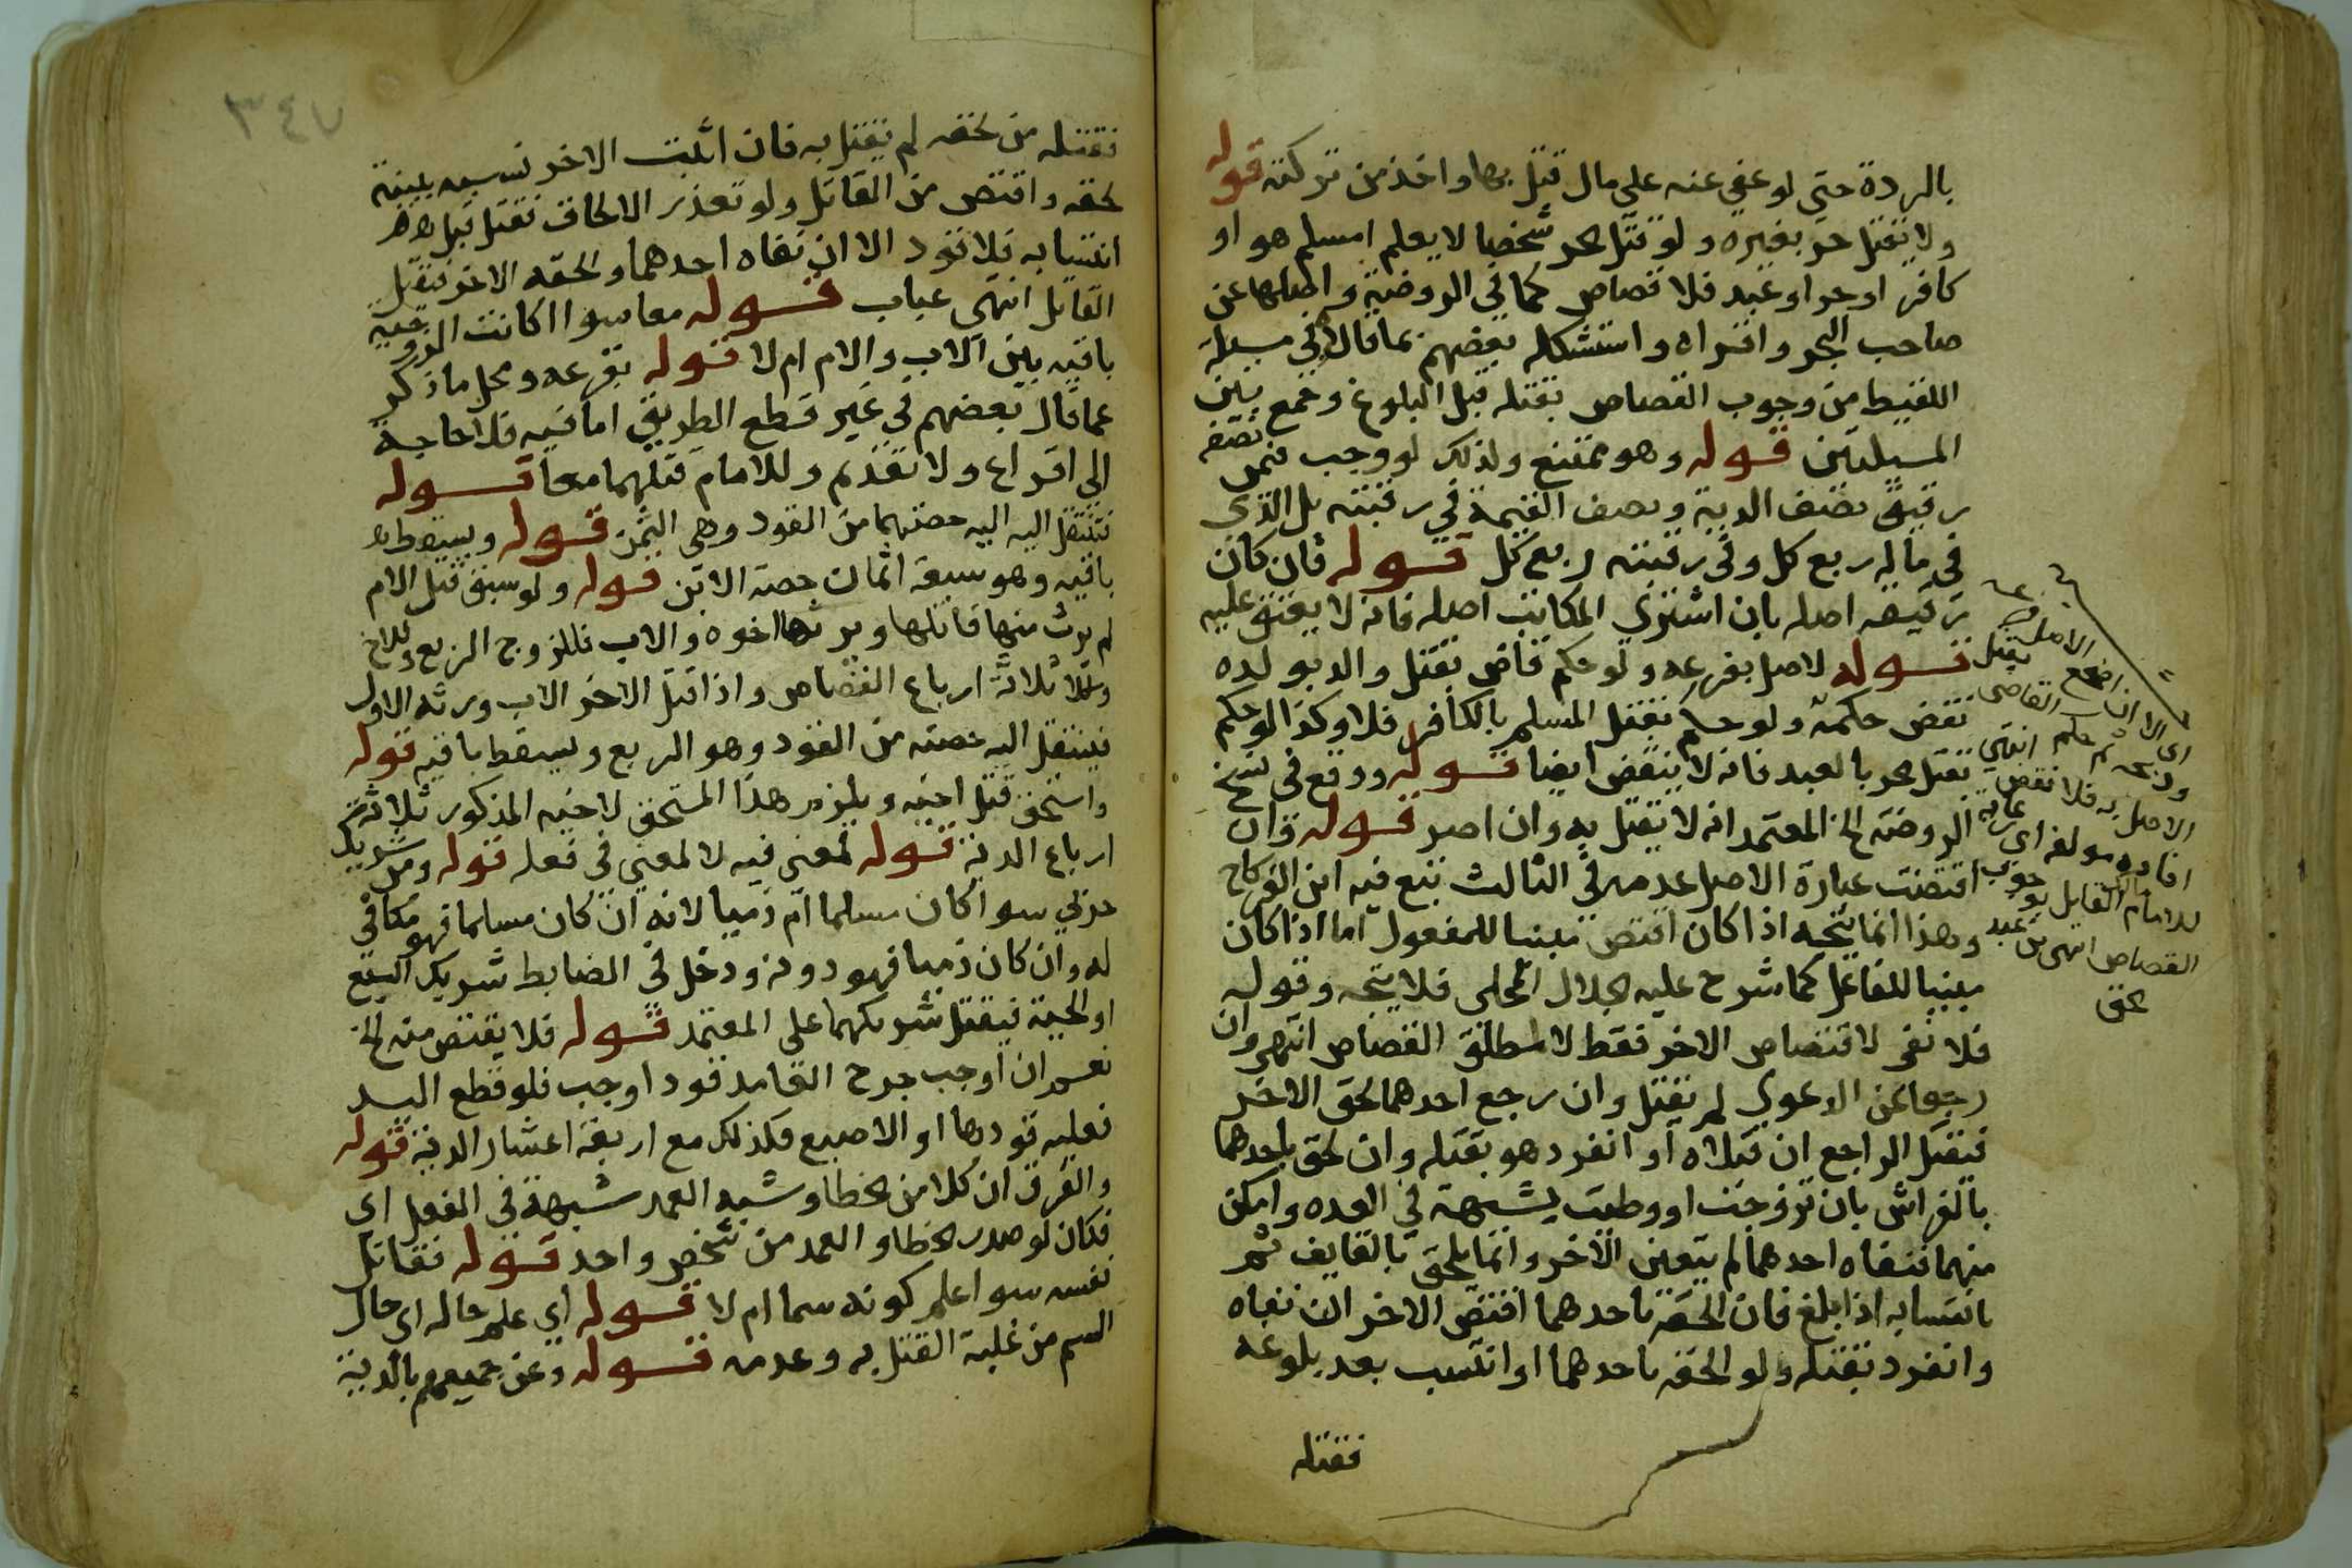 بالردة حتى لو عفى عنه على مال قتل بها واخذ من تركته قوله
ولا يقتل حر بغيره ولو قتل حر شخصا لا يعلم امسلم هو او
كافر او حر او عبد فلا قصاص كما في الروضة واصلها عن
صاحب البحر واقراه واستشكله بعضهم بما قالاه في مسيلة
اللقيط من وجوب القصاص بقتله قبل البلوغ وجمع بين
المسيلتين قوله وهو ممتنع ولذلك لو وجب فيمن نصفه
رقيق نصف الدية ونصف القيمة في رقبته بل الذي
في ماله ربع كل وفي رقبته ربع كل قوله فان كان
رقيقه اصله بان اشتري المكاتب اصله فانه لا يعتق عليه
قوله لاصل بفرعه ولو حكم قاض بقتل والد بولده
نقض حكمه ولو حكم بقتل المسلم بالكافر فلا وكذا لو حكم
بقتل حر بالعبد فانه لا ينقض ايضا قوله ووقع في نسخ
الروضة الخ المعتمد انه لا يقتل به وان اصر قوله وان
اقتضت عبارة الاصل عدمه في الثالث تبع فيه ابن الفركاح
وهذا انما يتجه اذا كان اقتص مبنيا للمفعول اما اذا كان
مبنيا للفاعل كما شرح عليه الجلال المحلى فلا يتجه وقوله
فلا نفي لاقتصاص الاخر فقط لا لمطلق القصاص انتهى وان
رجعا عن الدعوي لم يقتل وان رجع احدهما لحق الاخر
فيقتل الراجع ان قتلاه او انفرد هو بقتله وان لحق باحدهما
بالفراش بان تزوجت او وطيت بشبهة في العده وامكن
منهما فنفاه احدهما لم يتعين الاخر وانما يلحق بالقايف ثم
بانتسابه اذا بلغ فان الحقه باحدهما اقتص الاخر ان نفاه
وانفرد بقتله ولو الحقه باحدهما او انتسب بعد بلوغه
فقتله
الاصل
اي الا ان اضجع الاصل
وذبحه ثم حكم القاضي بقتل
الاصل به فلا نقض انتهى
افاده مولفه اي
للامام مالك القايل بوجوب
القصاص انتهى من عبد
الحق
٣٤٧
فقتله من لحقه لم يقتل به فان اثبت الاخر نسبه ببينة
لحقه واقتص من القاتل ولو تعذر الالحاق فقتل قبل
انتسابه فلا قود الا ان نفاه احدهما والحقه الاخر فيقتل
القاتل انتهى عباب قوله معا سوا اكانت الزوجية
باقيه بين الاب والام ام لا قوله بقرعه ومحل ما ذكر
كما قال بعضهم في غير قطع الطريق اما فيه فلا حاجة
الي اقراع ولا تقدم وللامام قتلهما معا قوله
فتنتقل اليه اليه حصتهما من القود وهي الثمن قوله ويسقط
باقيه وهو سبعة اثمان حصة الابن قوله ولو سبق قتل الام
لم يرث منها قاتلها ويرثها اخوه والاب فللزوج الربع وللاخ
ثلاثة ارباع القصاص واذا قتل الاخر الاب ورثه الاول
فينتقل اليه حصته من القود وهو الربع ويسقط باقيه قوله
واستحق قتل اخيه ويلزم هذا المستحق لاخيه المذكور ثلاثة
ارباع الدية قوله لمعنى فيه لا لمعني في فعله قوله ومن شريك
حربي سوا كان مسلما ام ذميا لانه ان كان مسلما فهو مكافي
له وان كان ذميا فهو دونه ودخل في الضابط شريك السبع
او الحية فيقتل شريكهما على المعتمد قوله فلا يقتص منه الخ
نعم ان اوجب جرح العامد قودا وجب فلو قطع اليد
فعليه قودها او الاصبع فكذلك مع اربعة اعشار الدية قوله
والفرق ان كلا من الخطا وشبه العمد شبهة في الفعل اي
فكان لو صدر الخطا والعمد من شخص واحد قوله فقاتل
نفسه سوا علم كونه سما ام لا قوله اي علم حاله اي حال
السم من غلبة القتل به وعدمه قوله وعن جميعهم بالدية